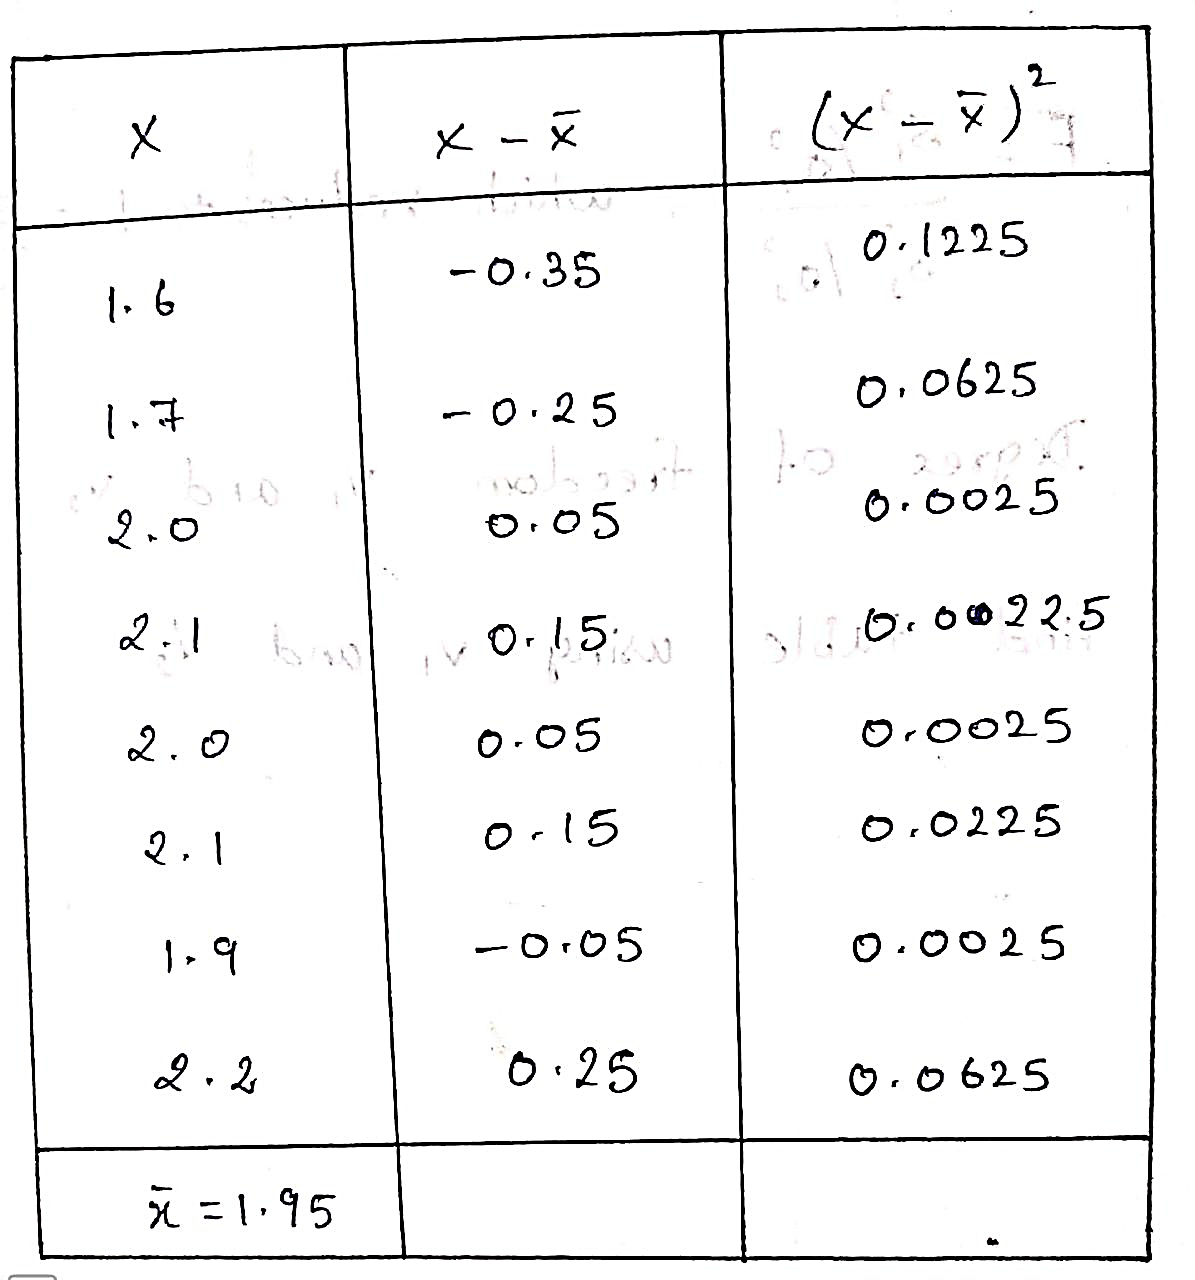 x x - x̄ (x - x̄)²
1.6 -0.35 0.1225
1.7 -0.25 0.0625
2.0 0.05 0.0025
2.1 0.15 0.0225
2.0 0.05 0.0025
2.1 0.15 0.0225
1.9 -0.05 0.0025
2.2 0.25 0.0625
x̄ = 1.95